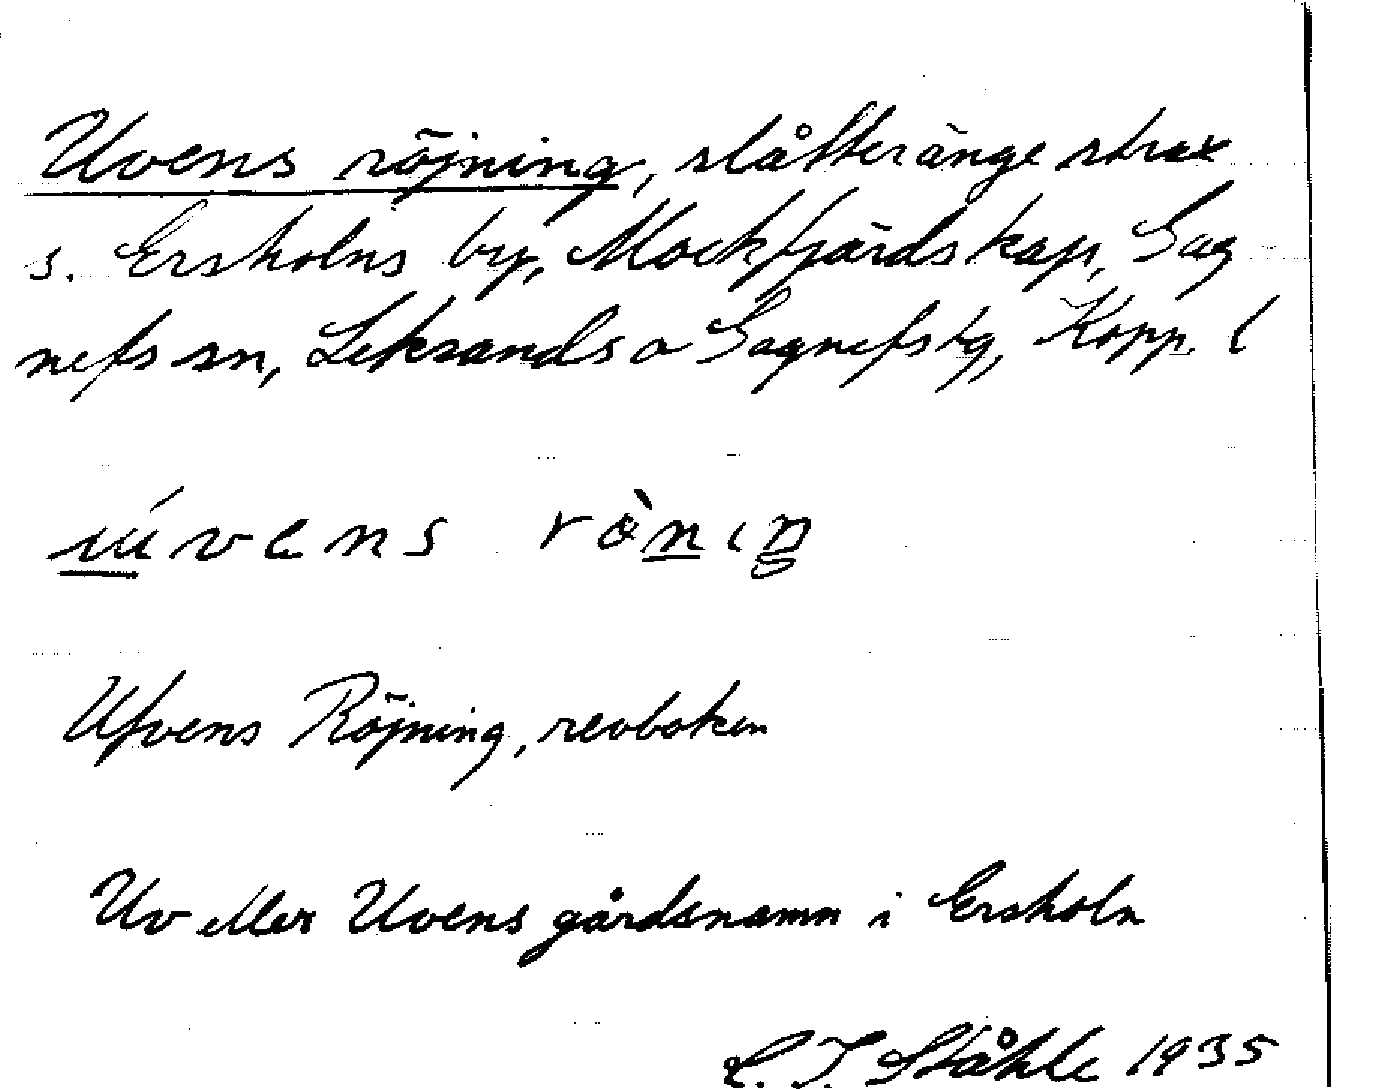 Uvens röjning, slåtteränge strax
s. Ersholns by, Mockfjärds kap, Gag
nefs sn, Leksands o Gagnefs tg, Kopp. l
úvens rönıŋ
Ufvens Röjning, revboken
Uv eller Uvens gårdsnamn i Ersholn
C. I. Ståhle 1935